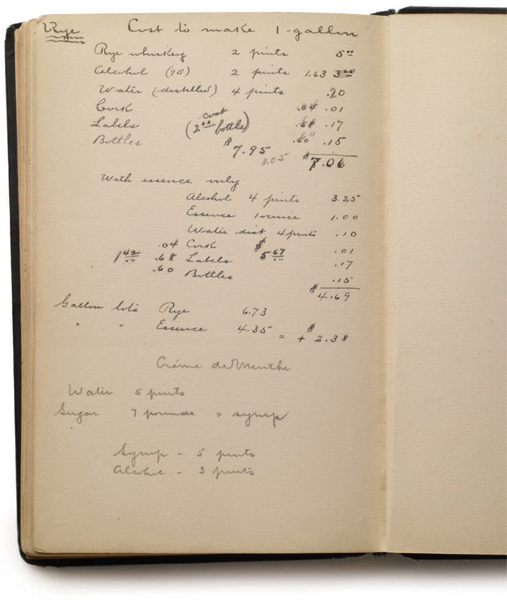 Rye Cost to make 1-gallon
Rye whiskey 2 pints 5.00
Alcohol (95) 2 pints 1.63
Water (distilled) 4 pints .20
Cork .04 .01
Labels (2.00 cost bottles) .68 .17
Bottles .60 .15
$7.95 8.05 $7.06
With essence only
Alcohol 4 pints 3.25
Essence 1 ounce 1.00
Water dist 4 pints .10
.04 Cork .01
.68 Labels .17
.60 Bottles .15
$4.69
Gallon lots Rye 6.73
" " Essence 4.35 = + $2.38
Créme de Menthe
Water 5 pints
Sugar 7 pounds = syrup
Syrup - 5 pints
Alcohol - 3 pints